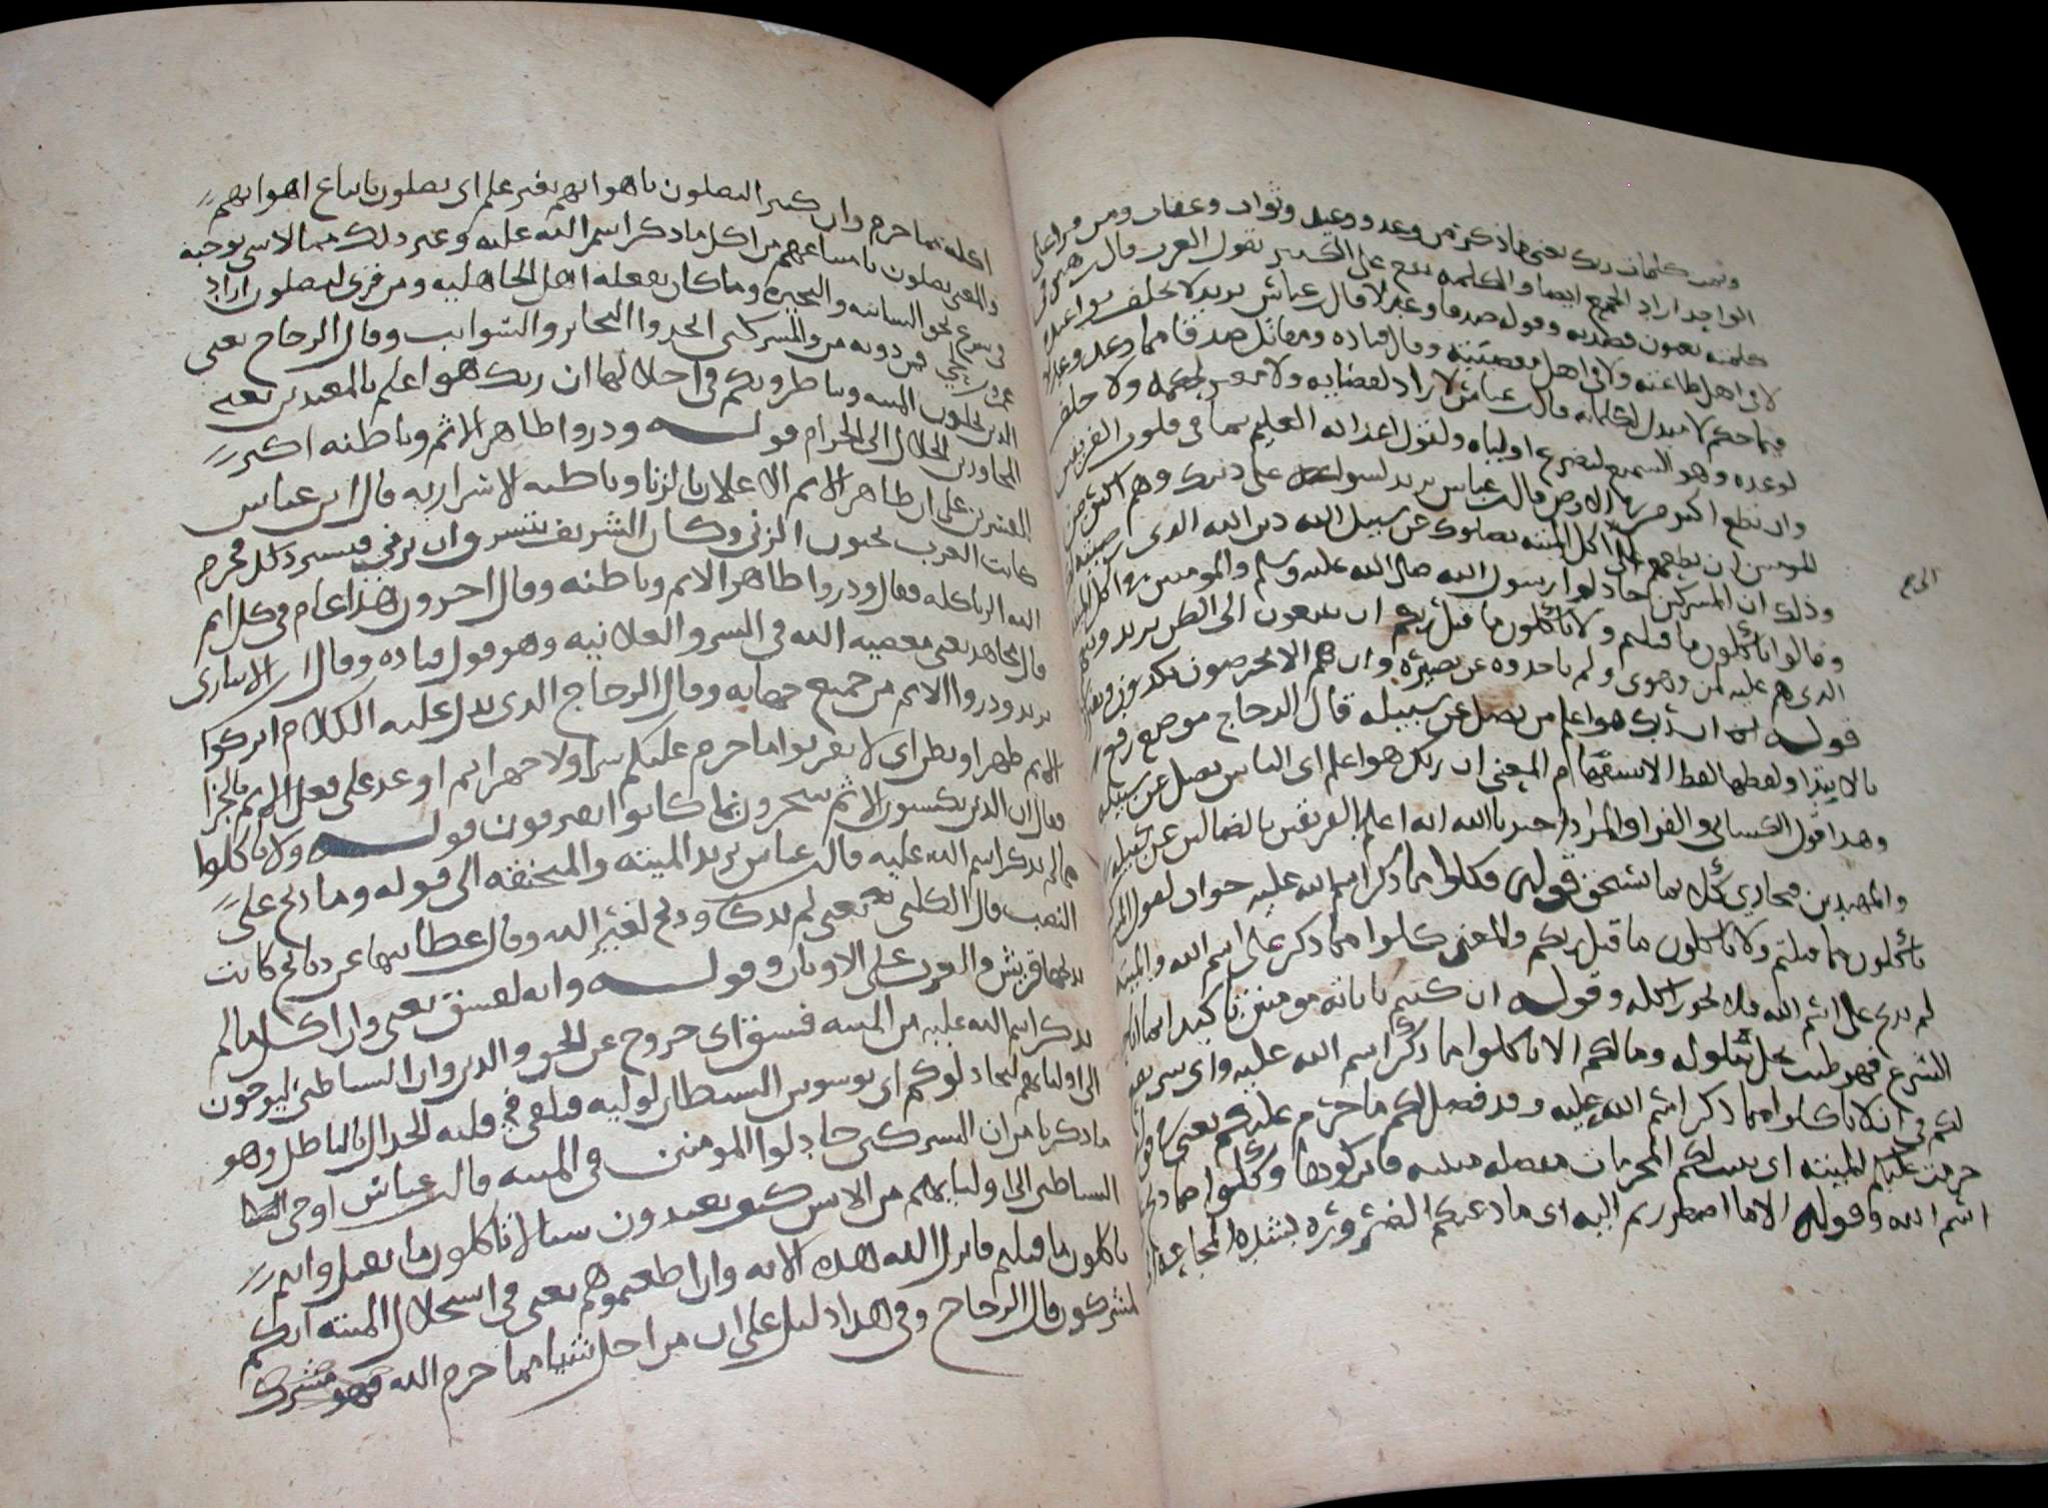 وتمت كلمات ربك يعني ما ذكر من وعد ووعيد وثواب وعقاب ومن قرا على
الواحد اراد الجمع ايضا والكلمه تقع على الكثير تقول العرب قال زهير في
كلمته يعنون قصيدته وقوله صدقا وعدلا قال عباس يريد لا يخلف مواعيده
لا في اهل طاعته ولا في اهل معصيته وقال قتاده ومقاتل صدقا فيما وعد وعدلا
فيما حكم لا مبدل لكلماته قال عباس لا راد لقضايه ولا مغير لحكمه ولا خلف
لوعده وهو السميع لتضرع اوليايه ولقول اعدايه العليم بما في قلوب الفريقين
وان تطع اكثر من في الارض قال عباس يريد ليسوا على دينك وهم اكثر من
المومنين ان تطعهم في اكل الميته يضلوك عن سبيل الله دين الله الذي
وذلك ان المشركين جادلوا رسول الله صلى الله عليه وسلم والمومنين في اكل الميته
وقالوا تاكلون ما قتلتم ولا تاكلون ما قتل ربكم ان يتبعون الا الظن يريد دينهم
الذي هم عليه ظن وهوى ولم ياخذوه عن بصيره وان هم الا يخرصون يكذبون
قوله ان ربك هو اعلم من يضل عن سبيله قال الزجاج موضع من رفع
بالابتدا ولفظها لفظ الاستفهام المعنى ان ربك هو اعلم اي الناس يضل عن سبيله
وهذا قول الكسائي والفرا والمراد اخبر بالله انه اعلم بالفريقين بالضالين عن سبيله
والمهتدين فيجازي كل بما يستحق قوله فكلوا مما ذكر اسم الله عليه جواب لقول
تاكلون مما قتلتم ولا تاكلون ما قتل ربكم والمعنى كلوا مما ذكر على اسم الله والميته
لم يذبح على اسم الله فلا يجوز اكله وقوله ان كنتم باياته مومنين تاكيد
الشرع فهو طيب يحل تناوله وما لكم الا تاكلوا مما ذكر اسم الله عليه واي شي يقع
لكم في ان لا تاكلوا مما ذكر اسم الله عليه وقد فصل لكم ما حرم عليكم يعني
حرمت عليكم الميته اي بينت لكم المحرمات مفصله مبينه فاتركوها وكلوا مما ذبح
اسم الله وقوله الا ما اضطررتم اليه اي ما دعتكم الضروره بشده المجاعه
اكله مما حرم وان كثيرا ليضلون باهوايهم بغير علم اي يضلون باتباع اهوايهم
والمعنى يضلون بامتناعهم من اكل ما ذكر اسم الله عليه وغير ذلك مما لا شي يوجبه
في شرع نحو السائبه والبحيره وما كان يفعله اهل الجاهليه ومن قرى ليضلون اراد
عمرو بن لحي فمن دونه من المشركين اتخذوا البحاير والسوايب وقال الزجاج يعني
الذين يحلون الميته ويناظرونكم في احلالها ان ربك هو اعلم بالمعتدين يعني
المجاوزين الحلال الى الحرام قوله وذروا ظاهر الاثم وباطنه اكثر
المفسرين على ان ظاهر الاثم الاعلان بالزنا وباطنه الاستسرار به قال ابن عباس
كانت العرب يحبون الزنى وكان الشريف يتستر وان يزني فيستر ذلك فحرم
الله الزنا كله فقال وذروا ظاهر الاثم وباطنه وقال اخرون هذا عام في كل اثم
قال مجاهد يعني معصيه الله في السر والعلانيه وهو قول قتاده وقال الانباري
يريد وذروا الاثم من جميع جهاته وقال الزجاج الذي يدل عليه الكلام اتركوا
الاثم ظهر او بطن اي لا تقربوا ما حرم عليكم سرا ولا جهرا ثم اوعد على فعل الاثم بالجزا
فقال ان الذين يكسبون الاثم سيجزون بما كانوا يقترفون قوله ولا تاكلوا
مما لم يذكر اسم الله عليه قال عباس يريد الميته والمنخنقه الى قوله وما ذبح على
النصب قال الكلبي يعني لم يذك وذبح لغير الله وقال عطا ينها عن ذبايح كانت
تذبحها قريش والعرب على الاوثان وقوله وانه لفسق يعني وان اكل ما لم
يذكر اسم الله عليه من الميته فسق اي خروج عن الحق والدين وان الشياطين ليوحون
الى اوليايهم ليجادلوكم اي يوسوس الشيطان لوليه فيلقي في قلبه الجدال بالباطل وهو
ما ذكرنا من ان المشركين جادلوا المومنين في الميته قال عباس اوحى
الشياطين الى اوليايهم من الانس كيف تعبدون شيا لا تاكلون ما يقتل وانتم
تاكلون ما قتلتم فانزل الله هذه الايه وان اطعتموهم يعني في استحلال الميته انكم
لمشركون قال الزجاج وفي هذا دليل على ان من احل شيا مما حرم الله فهو مشرك